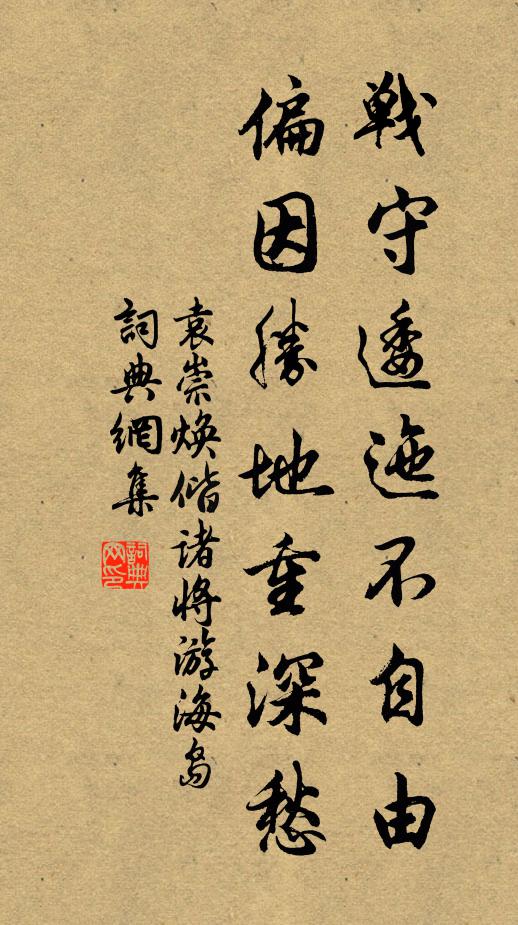 戦守逶迤不自由
偏因勝地重深愁
袁崇煥偕诸將游海岛
詞典網集
詞典网印